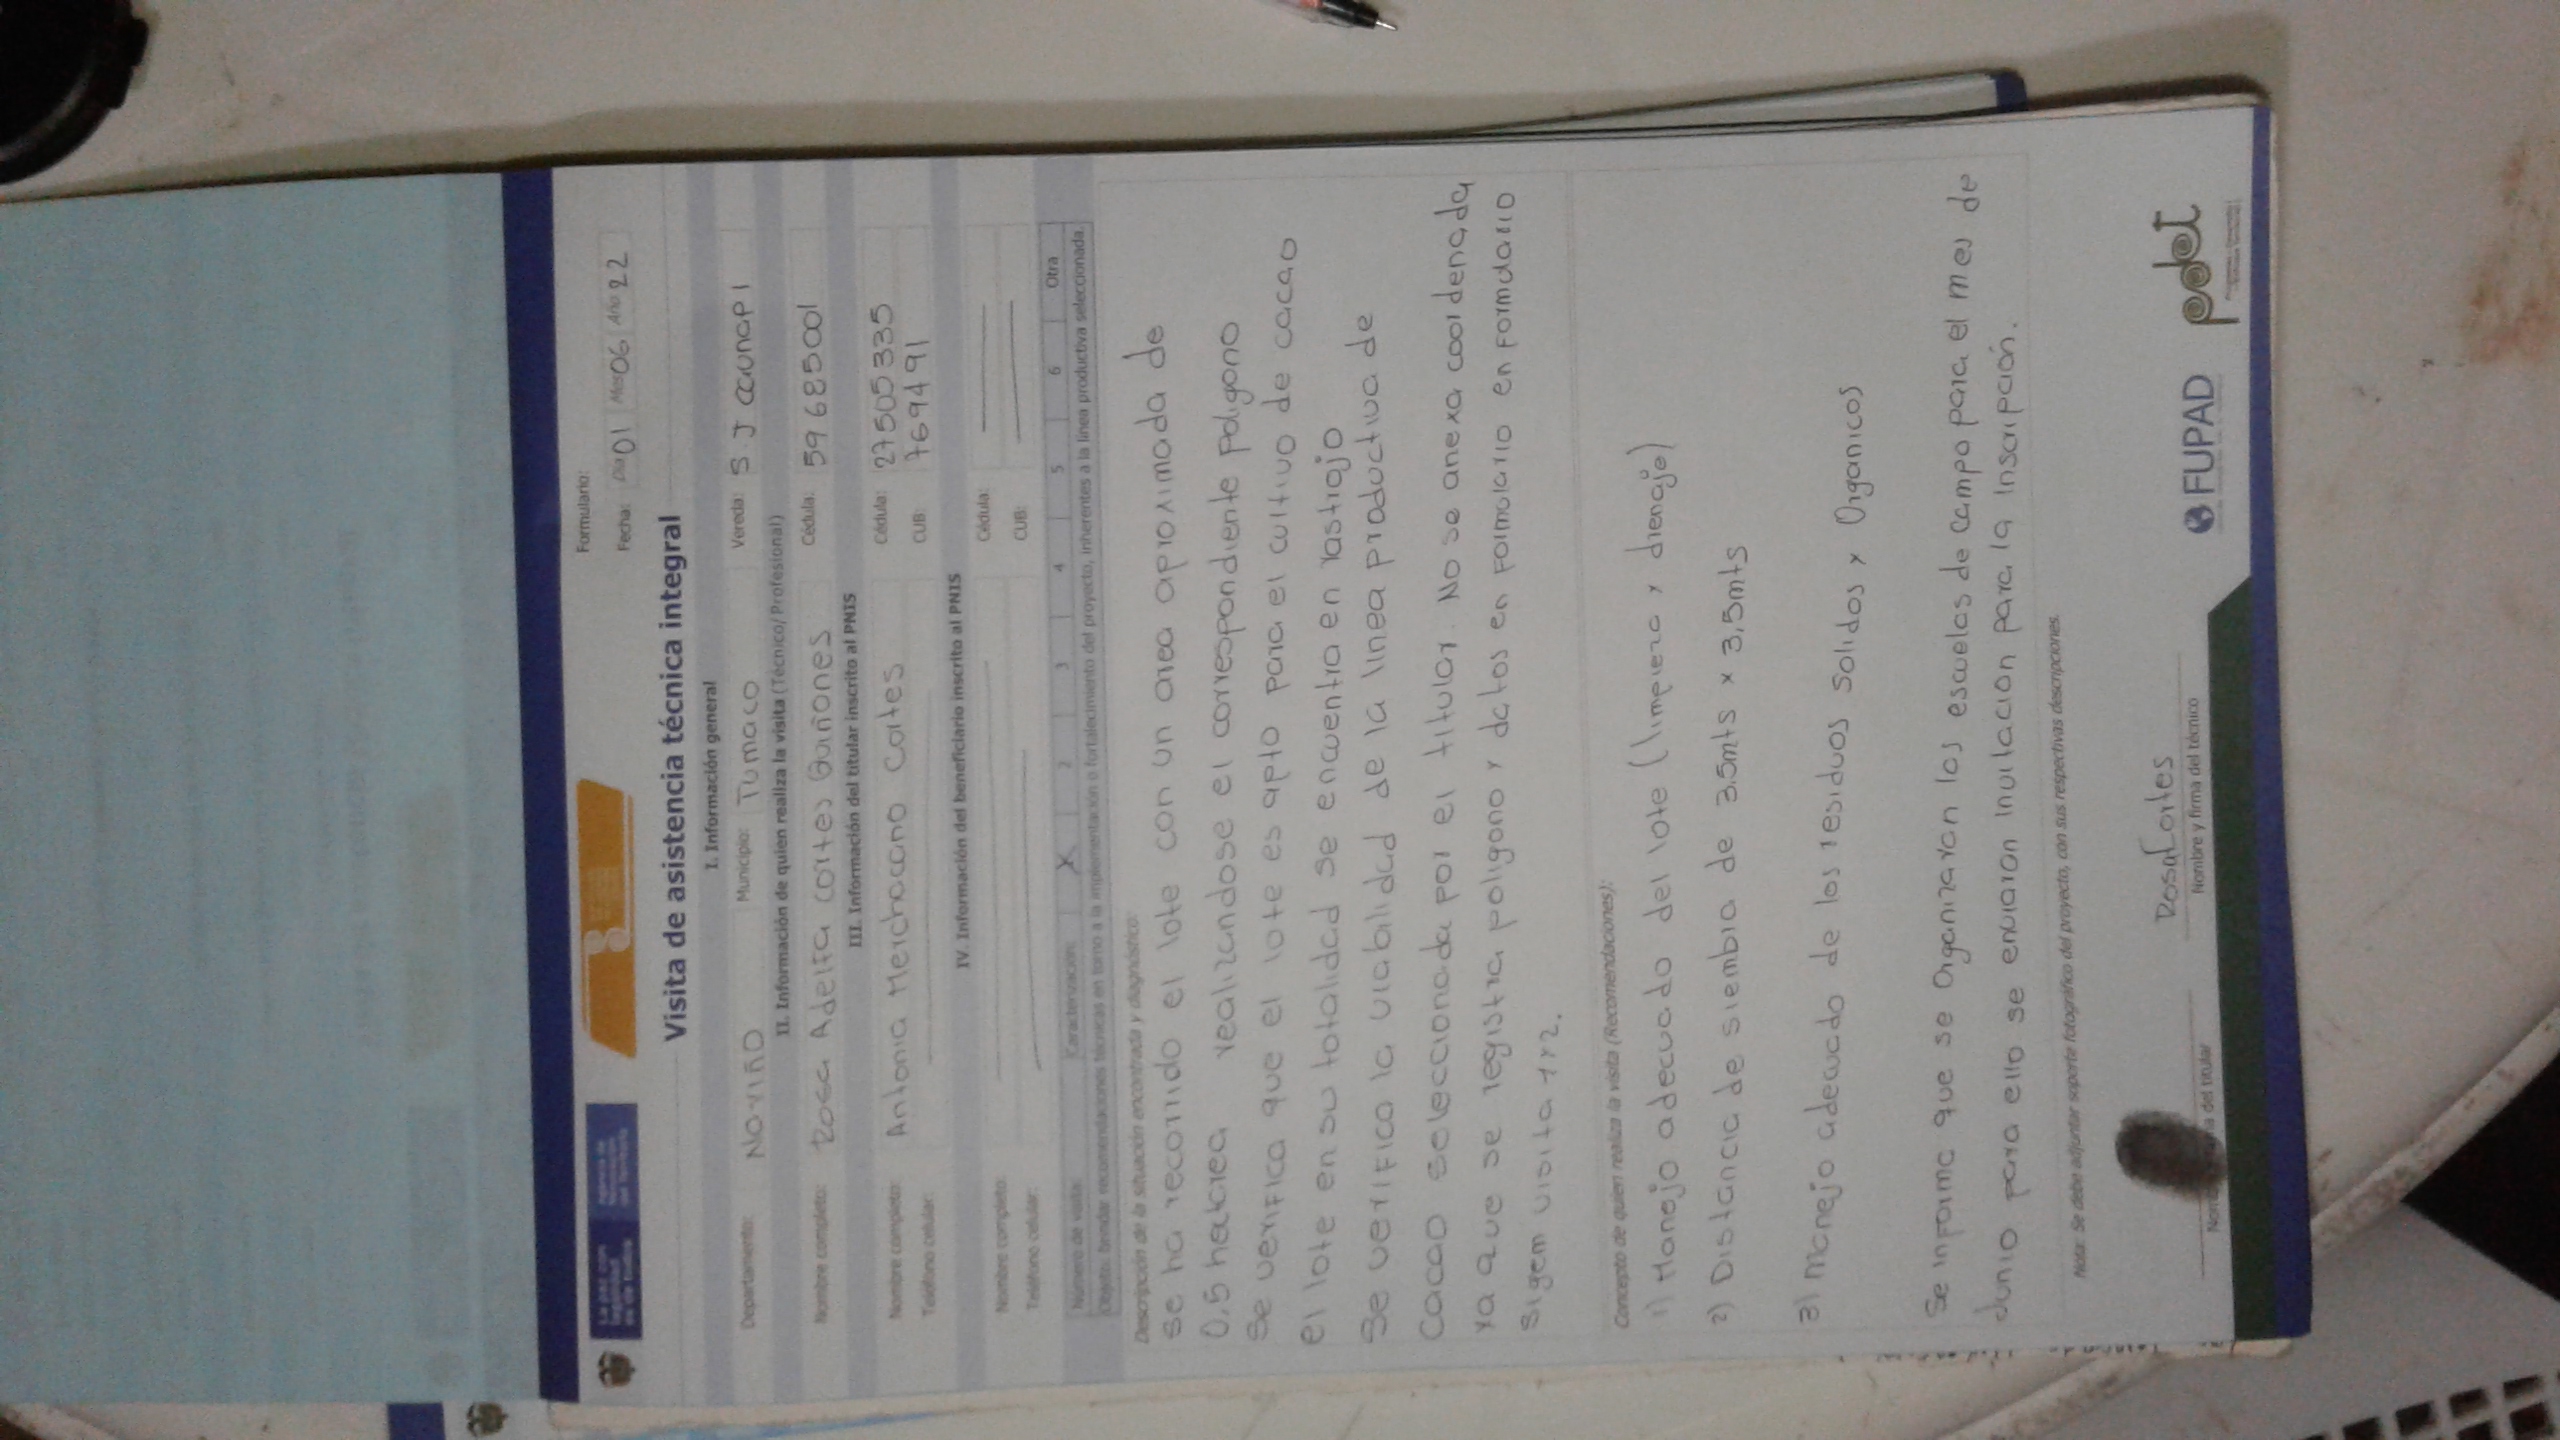 La paz con
legalidad
es de todos
Formulario:
Fecha: Día 01 Mes 06 Año 22
Visita de asistencia técnica integral
I. Información general
Departamento: NaYIÑO Municipio: Tumaco Vereda: S.J caunapI
II. Información de quien realiza la visita (Técnico/Profesional)
Nombre completo: Rosa Adelfa cortes Quiñones Cédula: 59685001
III. Información del titular inscrito al PNIS
Nombre completo: Antonia Meichacano Cortes Cédula: 27505335
Teléfono celular: CUB: 769491
IV. Información del beneficiario inscrito al PNIS
Nombre completo: Cédula:
Teléfono celular: CUB:
Número de visita: Caracterización: X 2 3 4 5 6 Otra
Objeto: brindar recomendaciones técnicas en torno a la implementación o fortalecimiento del proyecto, inherentes a la línea productiva seleccionada.
Descripción de la situación encontrada y diagnóstico:
se ha recorrido el lote con un area aproximada de
0,5 hectarea realizandose el correspondiente poligono
Se verifica que el lote es apto para el cultivo de cacao
el lote en su totalidad se encuentra en rastrojo
Se verifico la viabilidad de la linea productiva de
Cacao seleccionada por el titular. No se anexa coordenada
ya que se registra poligono y datos en formulario en formulario
sigem visita 1 y 2.
Concepto de quien realiza la visita (Recomendaciones):
1) Manejo adecuado del lote (limpieza y drenaje)
2) Distancia de siembra de 3.5mts x 3,5mts
3) manejo adecuado de los residuos Solidos y Organicos
Se informa que se Organizaron las escuelas de campo para el mes de
Junio para ello se enviaron invitacion para la Inscripción.
Nota: Se debe adjuntar soporte fotográfico del proyecto, con sus respectivas descripciones.
Rosa Cortes
del titular Nombre y firma del técnico
FUPAD pdet